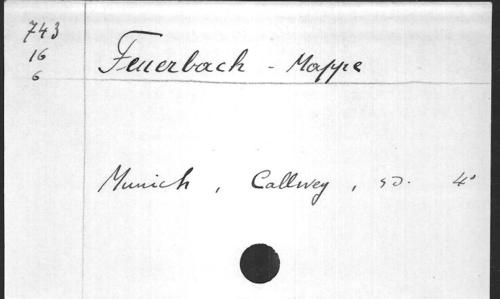 743
16
6
Feuerbach - Mappe
Munich, Callwey, s.d. 4°